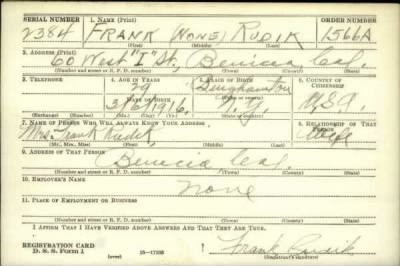 SERIAL NUMBER 1. NAME (Print) ORDER NUMBER
2384 FRANK (NONE) RUDIK 1566A
(First) (Middle) (Last)
2. ADDRESS (Print)
60 West "I" St, Benicia Cal.
(Number and street or R. F. D. number) (Town) (County) (State)
3. TELEPHONE 4. AGE IN YEARS 5. PLACE OF BIRTH 6. COUNTRY OF CITIZENSHIP
29 Binghamton
DATE OF BIRTH (Town or county)
3/6/1911 N.Y. U.S.A.
(Exchange) (Number) (Mo.) (Day) (Yr.) (State or country)
7. NAME OF PERSON WHO WILL ALWAYS KNOW YOUR ADDRESS 8. RELATIONSHIP OF THAT PERSON
Mrs. Frank Rudik Wife
(Mr., Mrs., Miss) (First) (Middle) (Last)
9. ADDRESS OF THAT PERSON
Benicia Cal.
(Number and street or R. F. D. number) (Town) (County) (State)
10. EMPLOYER'S NAME
None
11. PLACE OF EMPLOYMENT OR BUSINESS
(Number and street or R. F. D. number) (Town) (County) (State)
I AFFIRM THAT I HAVE VERIFIED ABOVE ANSWERS AND THAT THEY ARE TRUE.
REGISTRATION CARD
D. S. S. FORM 1 Frank Rudik
(over) (Registrant's signature)